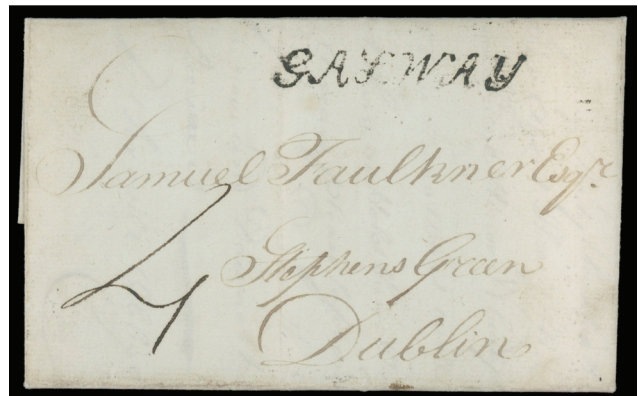 GALWAY
Samuel Faulkner Esqr.
4
Stephens Green
Dublin